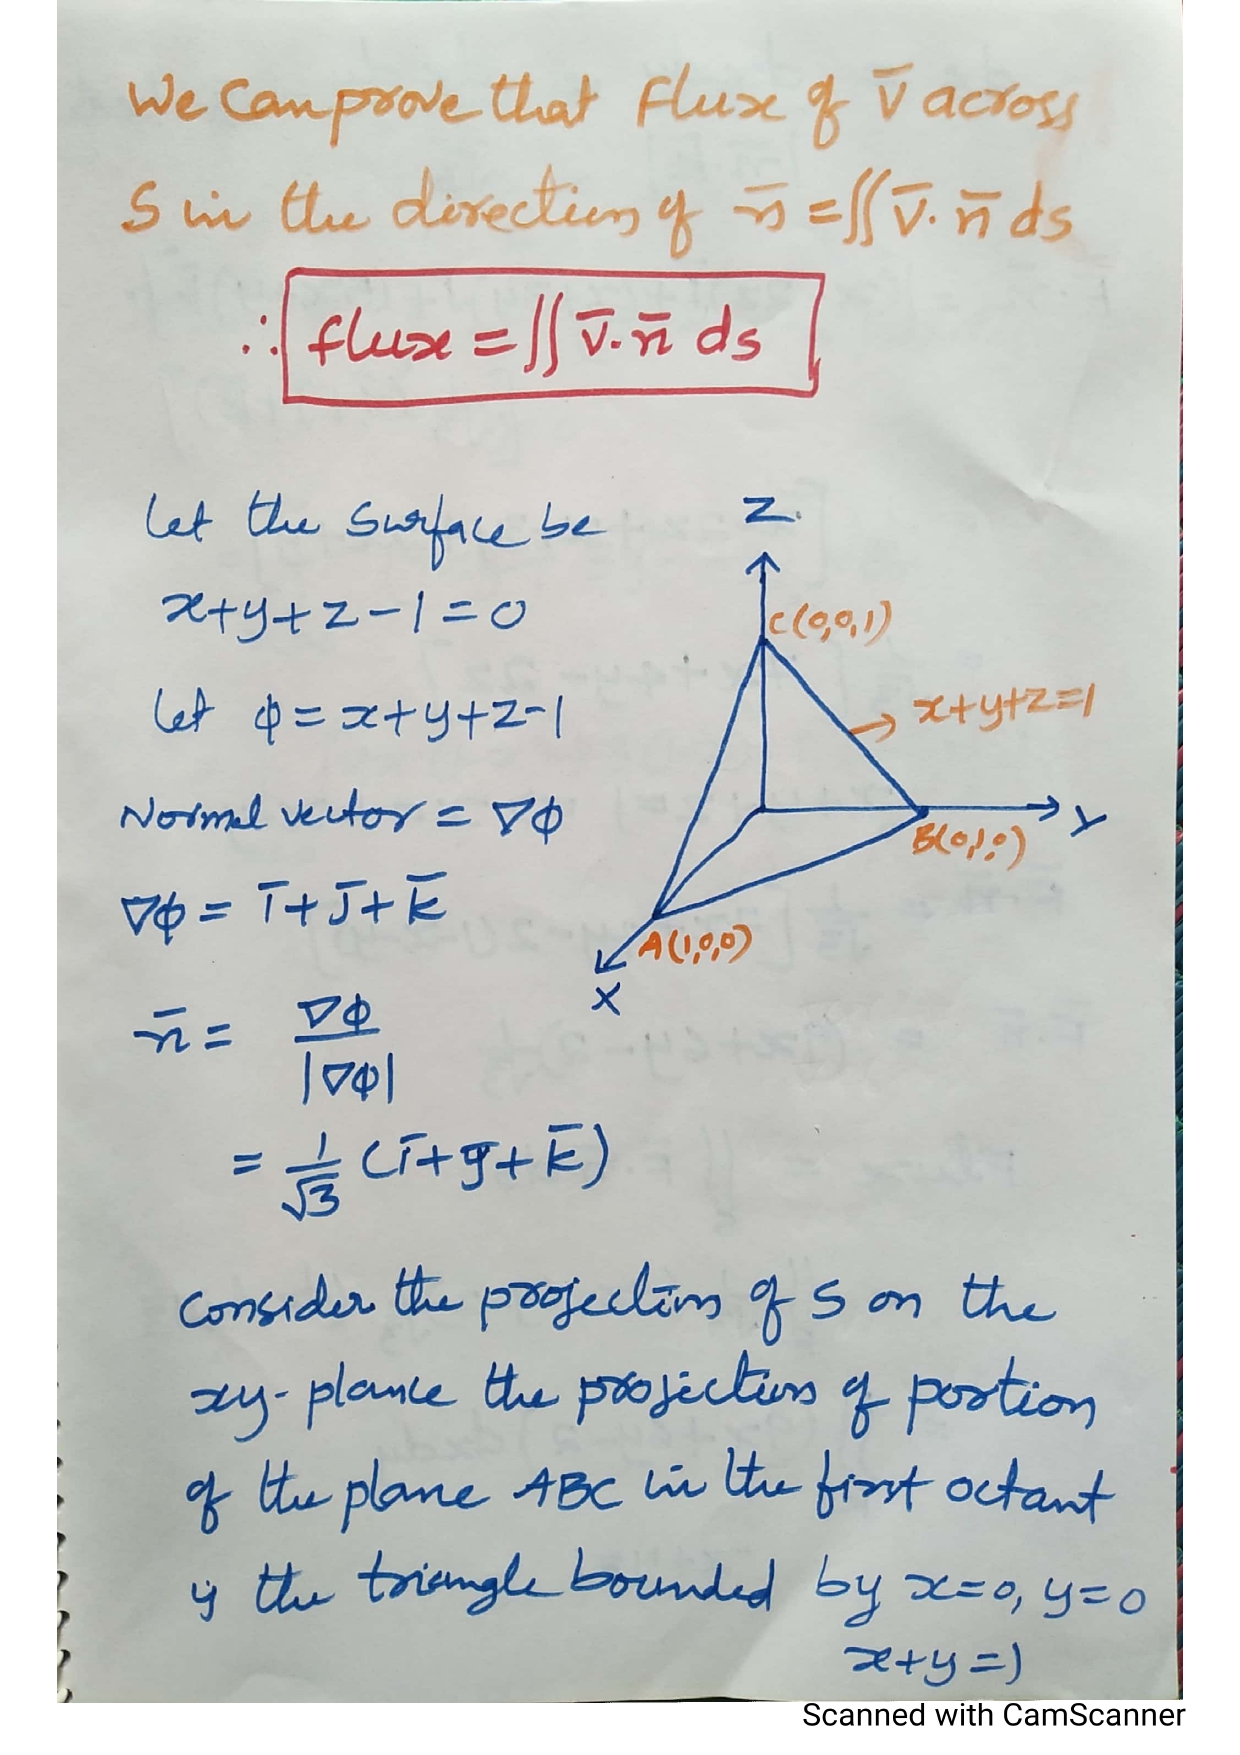 We can prove that flux of v̅ across
S in the direction of n̅ = ∬ v̅. n̅ ds
∴ flux = ∬ v̅. n̅ ds
Let the surface be
x+y+z-1=0
Let ϕ = x+y+z-1
Normal vector = ∇ϕ
∇ϕ = i̅+j̅+k̅
n̅ = ∇ϕ / |∇ϕ|
= 1/√3 (i̅+j̅+k̅)
Z
C(0,0,1)
→ x+y+z=1
Y
B(0,1,0)
A(1,0,0)
X
Consider the projection of S on the
xy-plance the projection of portion
of the plane ABC in the first octant
is the triangle bounded by x=0, y=0
x+y=1
Scanned with CamScanner